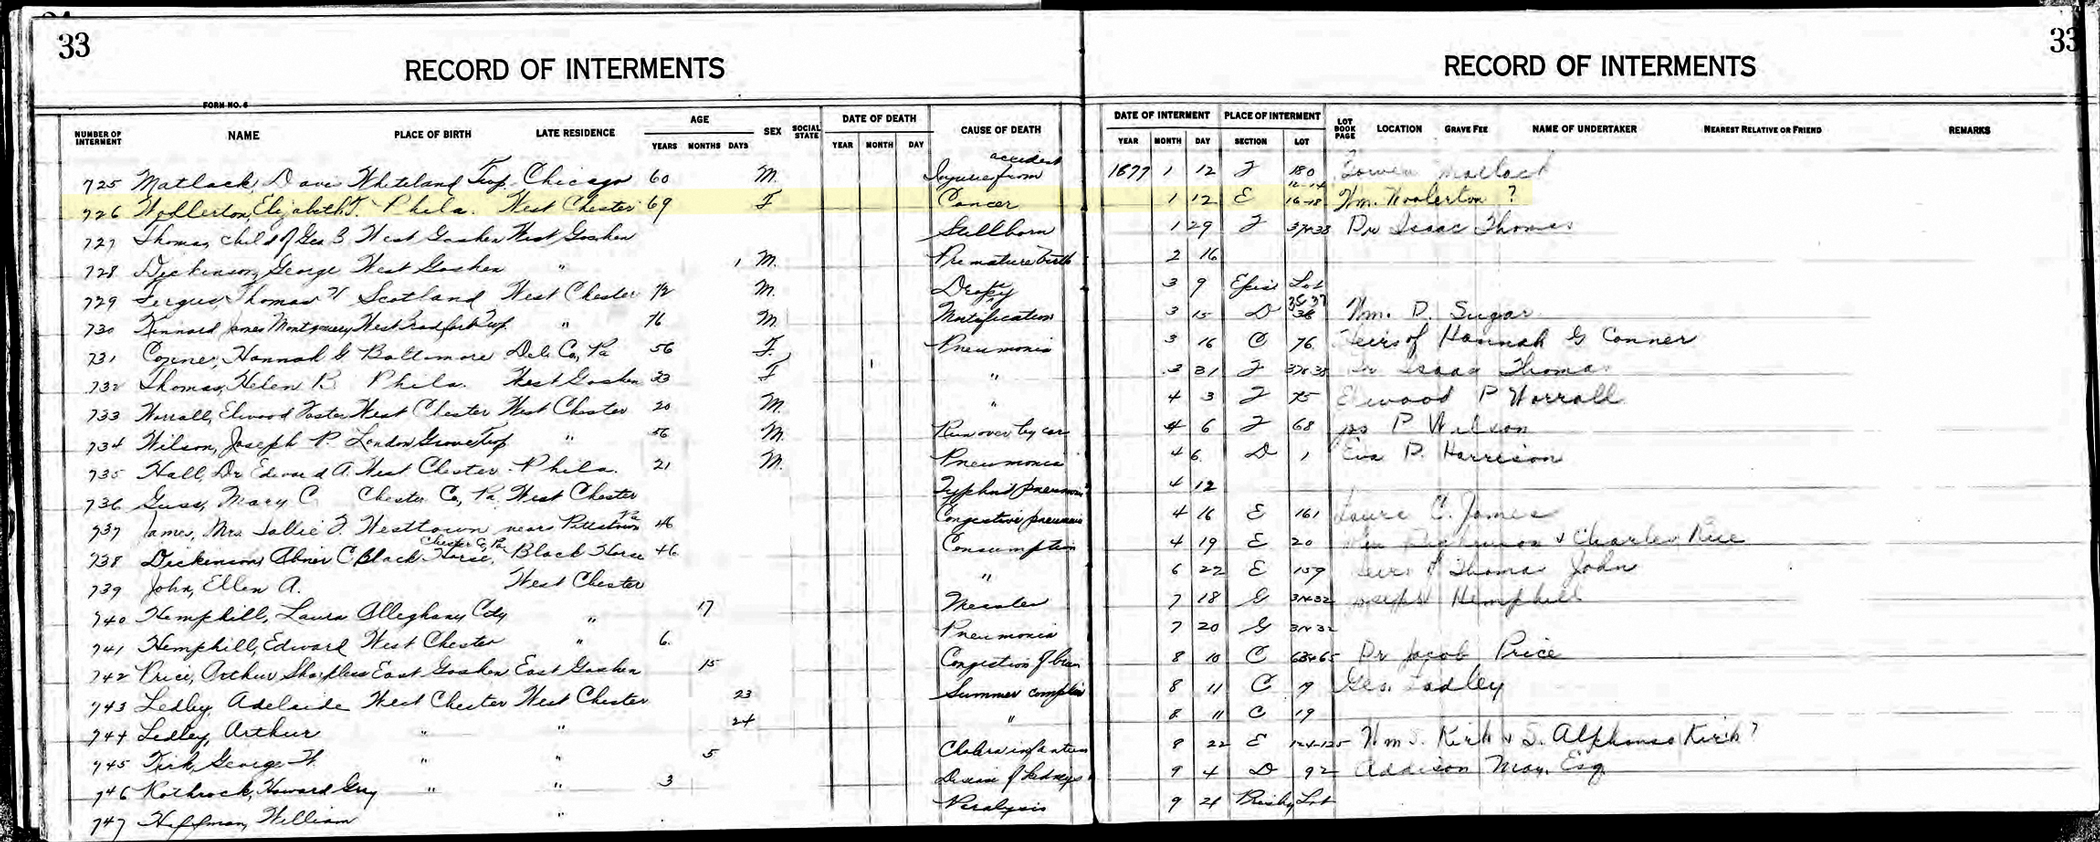 33
33
RECORD OF INTERMENTS
RECORD OF INTERMENTS
FORM NO. 6
NUMBER OF INTERMENT NAME PLACE OF BIRTH LATE RESIDENCE AGE YEARS MONTHS DAYS SEX SOCIAL STATE DATE OF DEATH YEAR MONTH DAY CAUSE OF DEATH DATE OF INTERMENT YEAR MONTH DAY PLACE OF INTERMENT SECTION LOT LOT BOOK PAGE LOCATION GRAVE FEE NAME OF UNDERTAKER NEAREST RELATIVE OR FRIEND REMARKS
725 Matlack, Davis Whiteland Twp. Chicago 60 M. Injuries from accident 1877 1 12 F 180 Matlack
726 Woollerton, Elizabeth F. Phila. West Chester 69 F Cancer 1 12 E 16-18 Wm. Woolerton ?
727 Thomas, child of Geo B. West Goshen West Goshen Stillborn 1 29 F 37+38 Dr Isaac Thomas
728 Dickinson, George West Goshen " 1 M. Premature birth 2 16
729 Fergus, Thomas H Scotland West Chester 72 M. Dropsy 3 9 Epis Lot
730 Kinnard James Montgomery West Bradford Twp. " 76 M Mortification 3 15 D 36 37 38 Wm. D. Sugar
731 Conner, Hannah G Baltimore Del. Co, Pa 56 F. Pneumonia 3 16 C 76 Heirs of Hannah G Conner
732 Thomas, Helen B. Phila. West Goshen 33 F " 3 31 F 37+38 Dr Isaac Thomas
733 Worrall, Elwood Foster West Chester West Chester 20 M. " 4 3 F 75 Elwood P Worrall
734 Wilson, Joseph P. London Grove Twp " 56 M. Run over by car 4 6 F 68 Jos P Wilson
735 Hall, Dr Edward A. West Chester Phila. 21 M. Pneumonia 4 6 D 1 Eva P. Harrison
736 Guss, Mary C Chester Co, Pa. West Chester Typhoid pneumonia 4 12
737 James, Mrs Sallie F. Westtown near Pa 46 Congestive pneumonia 4 16 E 161 C. James
738 Dickinson Abner C Black Horse, Chester Co, Pa Black Horse 46 Consumption 4 19 E 20 Dickinson & Charles Rice
739 John, Ellen A. West Chester " 6 22 E 159 Heirs of Thomas John
740 Hemphill, Laura Alleghany City " 17 Measles 7 18 G 31+32 Joseph Hemphill
741 Hemphill, Edward West Chester " 6. Pneumonia 7 20 G 31+32
742 Price, Arthur Sharpless East Goshen East Goshen 15 Congestion of brain 8 10 C 63+65 Dr Jacob Price
743 Ledley, Adelaide West Chester West Chester 23 Summer complaint 8 11 C 19 Geo. Ladley
744 Ledley, Arthur " " 24 " 8 11 C 19
745 Kirk, George W. " " 5 Cholera infantum 8 22 E 124-125 Wm S. Kirk & S. Alphonso Kirk ?
746 Rothrock, Howard Grey " " 3 Disease of kidneys 9 4 D 92 Addison May, Esq.
747 Hoffman, William " Paralysis 9 21 Lot